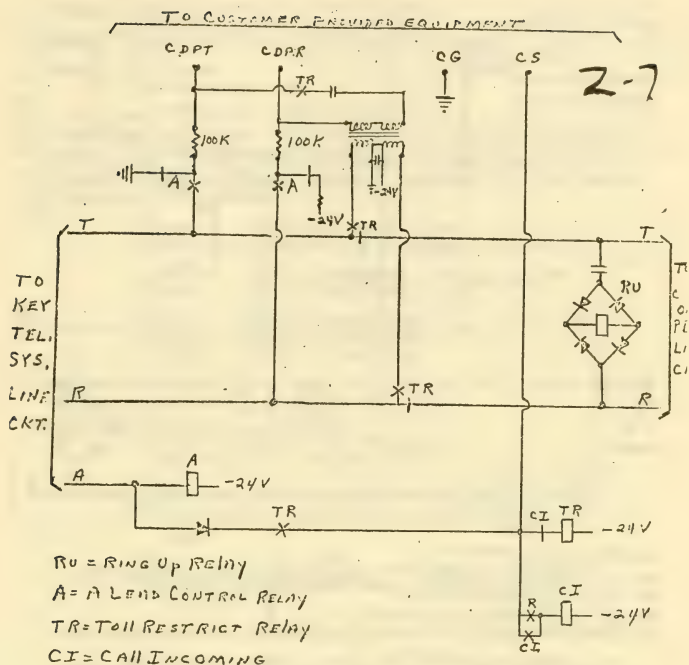 TO CUSTOMER PROVIDED EQUIPMENT
CDPT CDPR CG CS
2-7
TR
100K 100K
A A
-24V -24V
TR
T T
RU
TO
KEY
TEL.
SYS.
LINE
CKT.
TR
R R
A A -24V
TR
CI TR -24V
R CI -24V
CI
RU = RING UP RELAY
A = A LEAD CONTROL RELAY
TR = TOLL RESTRICT RELAY
CI = CALL INCOMING